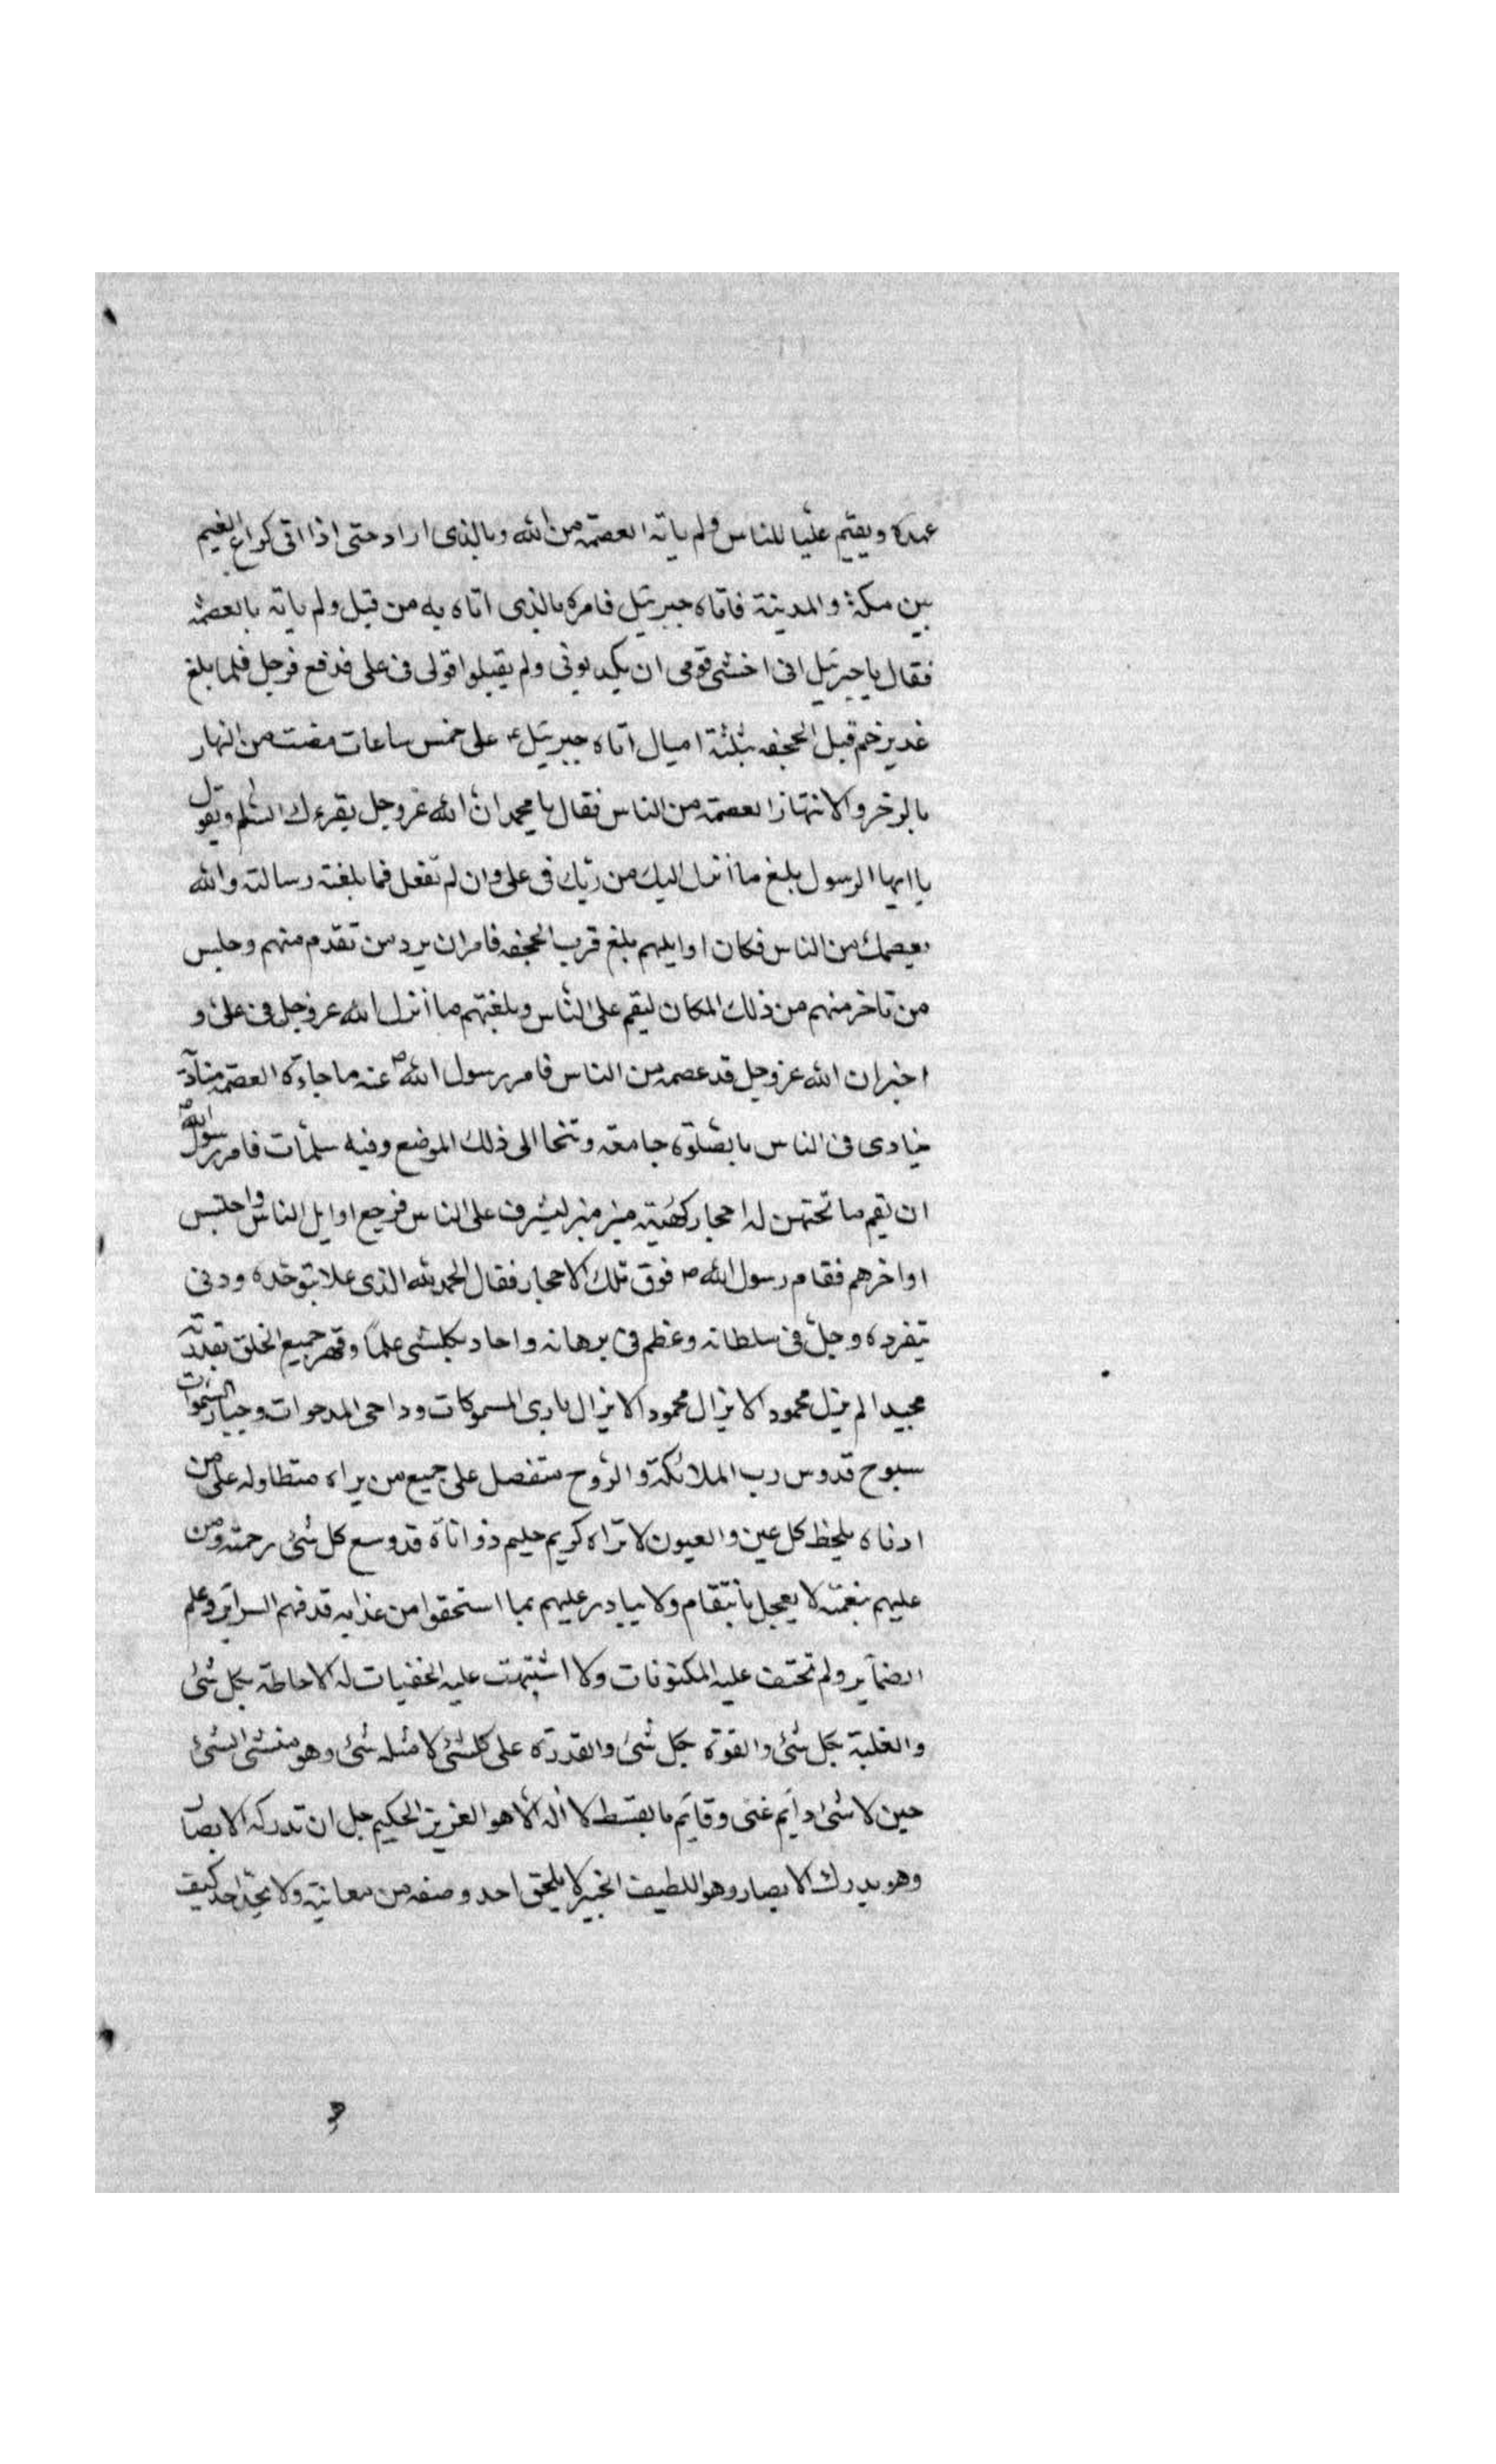 عهده ويقيم عليا للناس ولم ياته العصمة من الله وبالذى اراد حتى اذا اتى كراع الغيم
بين مكة والمدينة فاتاه جبرئيل فامره بالذى اتاه به من قبل ولم ياته بالعصمة
فقال يا جبرئيل انى اخشى قومى ان يكذبونى ولم يقبلوا قولى فى على فدفع فرحل فلما بلغ
غدير خم قبل الجحفه بثلثة اميال اتاه جبرئيل ع على خمس ساعات مضت من النهار
بالزخر والانتهاز العصمة من الناس فقال يا محمد ان الله عز وجل يقرءك السلم ويقول
يا ايها الرسول بلغ ما انزل اليك من ربك فى على وان لم تفعل فما بلغت رسالته والله
يعصمك من الناس فكان اوايلهم بلغ قرب الجحفه فامر ان يرد من تقدم منهم وحبس
من تاخر منهم من ذلك المكان ليقم على الناس وبلغتهم ما انزل الله عز وجل فى على و
اخبر ان الله عز وجل قد عصمه من الناس فامر رسول الله ص عنه ما جاءه العصمة مناد
ينادى فى الناس بالصلوة جامعة وتنحا الى ذلك الموضع وفيه سلمات فامر رسول الله ص
ان تقم ما تحتهن له احجار كهيئة منبر ليشرف على الناس فرجع اوايل الناس واحتبس
اواخرهم فقام رسول الله ص فوق تلك الاحجار فقال الحمد لله الذى علا بتوحده ودنى
بتفرده وجل فى سلطانه وعظم فى برهانه واحاد بكلشى علما وقهر جميع الخلق بقدرته
مجيدا لم يزل محمود الا يزال محمود الا يزال بارى المسموكات وداحى المدحوات وجبار السموات
سبوح قدوس رب الملائكة والروح متفضل على جميع من براه متطاوله على من
ادناه يلحظ كل عين والعيون لا تراه كريم حليم ذو اناة قد وسع كل شئ رحمته ومن
عليهم بنعمته لا يعجل بانتقام ولا يبادر عليهم بما استحقوا من عذابه قد فهم السراير وعلم
الضماير ولم تختف عليه المكنونات ولا اشتبهت عليه الخفيات له الاحاطة بكل شئ
والغلبة بكل شئ والقوة بكل شئ والقدرة على كلشئ لا مثله شئ وهو منشئ الشئ
حين لا شئ دايم غنى وقايم بالقسط لا اله الا هو العزيز الحكيم جل ان تدركه الابصار
وهو يدرك الابصار وهو اللطيف الخبير لا يلحق احد وصفه من معاينة ولا يجد احد كيف